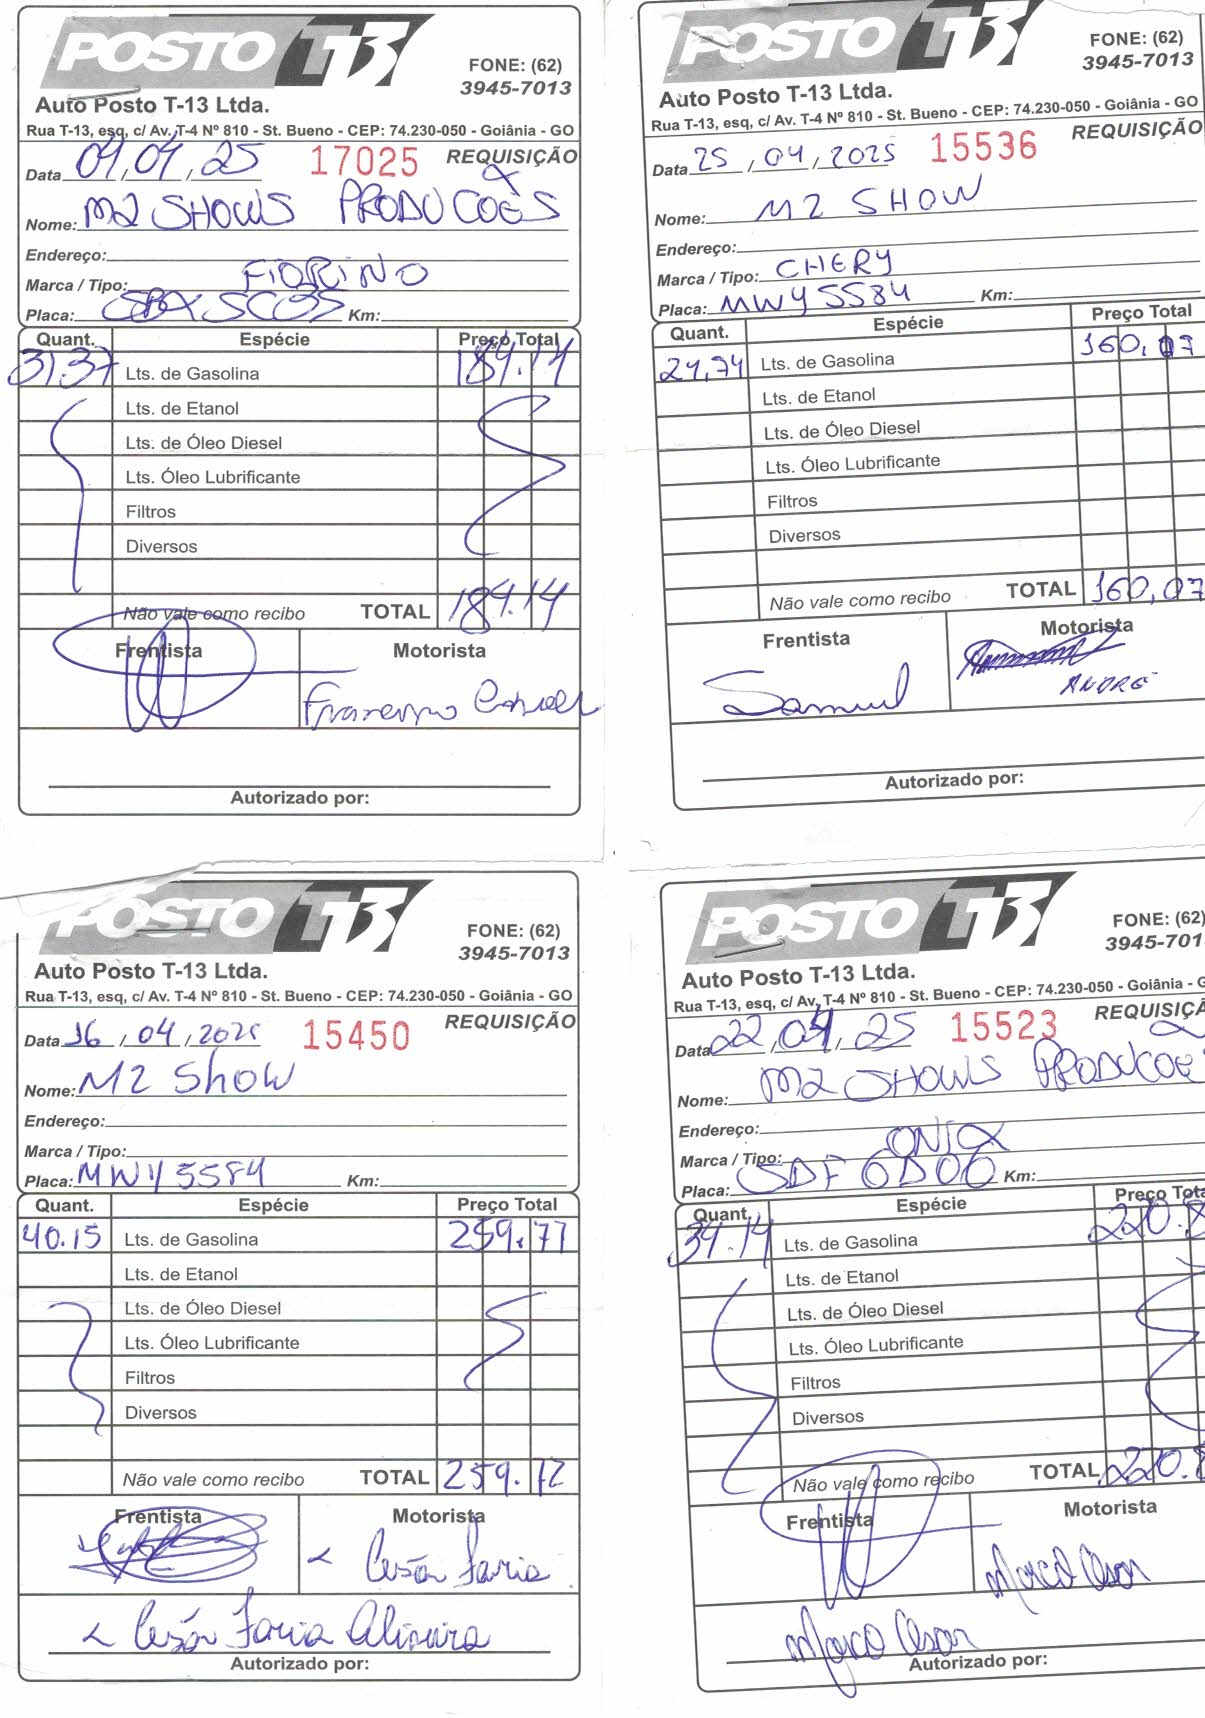 POSTO T-13
FONE: (62)
3945-7013
Auto Posto T-13 Ltda.
Rua T-13, esq, c/ Av. T-4 Nº 810 - St. Bueno - CEP: 74.230-050 - Goiânia - GO
REQUISIÇÃO
Data 09,04,25 17025
Nome: M2 SHOWS PRODUCOES
Endereço:
Marca / Tipo: FIORINO
Placa: Km:
Quant. Espécie Preço Total
31.37 Lts. de Gasolina 189.14
Lts. de Etanol
Lts. de Óleo Diesel
Lts. Óleo Lubrificante
Filtros
Diversos
Não vale como recibo TOTAL 189.14
Frentista Motorista
Autorizado por:
POSTO T-13
FONE: (62)
3945-7013
Auto Posto T-13 Ltda.
Rua T-13, esq, c/ Av. T-4 Nº 810 - St. Bueno - CEP: 74.230-050 - Goiânia - GO
REQUISIÇÃO
Data 25,04,2025 15536
Nome: M2 SHOW
Endereço:
Marca / Tipo: CHERY
Placa: MWY 5584 Km:
Quant. Espécie Preço Total
24,74 Lts. de Gasolina 160,07
Lts. de Etanol
Lts. de Óleo Diesel
Lts. Óleo Lubrificante
Filtros
Diversos
Não vale como recibo TOTAL 160,07
Frentista Motorista
Samuel ANDRE
Autorizado por:
POSTO T-13
FONE: (62)
3945-7013
Auto Posto T-13 Ltda.
Rua T-13, esq, c/ Av. T-4 Nº 810 - St. Bueno - CEP: 74.230-050 - Goiânia - GO
REQUISIÇÃO
Data 16/04/2025 15450
Nome: M2 Show
Endereço:
Marca / Tipo:
Placa: MWY 5584 Km:
Quant. Espécie Preço Total
40.15 Lts. de Gasolina 259.77
Lts. de Etanol
Lts. de Óleo Diesel
Lts. Óleo Lubrificante
Filtros
Diversos
Não vale como recibo TOTAL 259.72
Frentista Motorista
Cesár Faria
Cesár Faria Oliveira
Autorizado por:
POSTO T-13
FONE: (62)
3945-701
Auto Posto T-13 Ltda.
Rua T-13, esq, c/ Av. T-4 Nº 810 - St. Bueno - CEP: 74.230-050 - Goiânia - G
REQUISIÇÃ
Data 22,04,25 15523
Nome: M2 SHOWS PRODUCOE
Endereço:
Marca / Tipo: ONIX
Placa: SDF 6D06 Km:
Quant. Espécie Preço Tota
34.14 Lts. de Gasolina 220.8
Lts. de Etanol
Lts. de Óleo Diesel
Lts. Óleo Lubrificante
Filtros
Diversos
Não vale como recibo TOTAL 220.8
Frentista Motorista
Marco Cesar
Marco Cesar
Autorizado por: